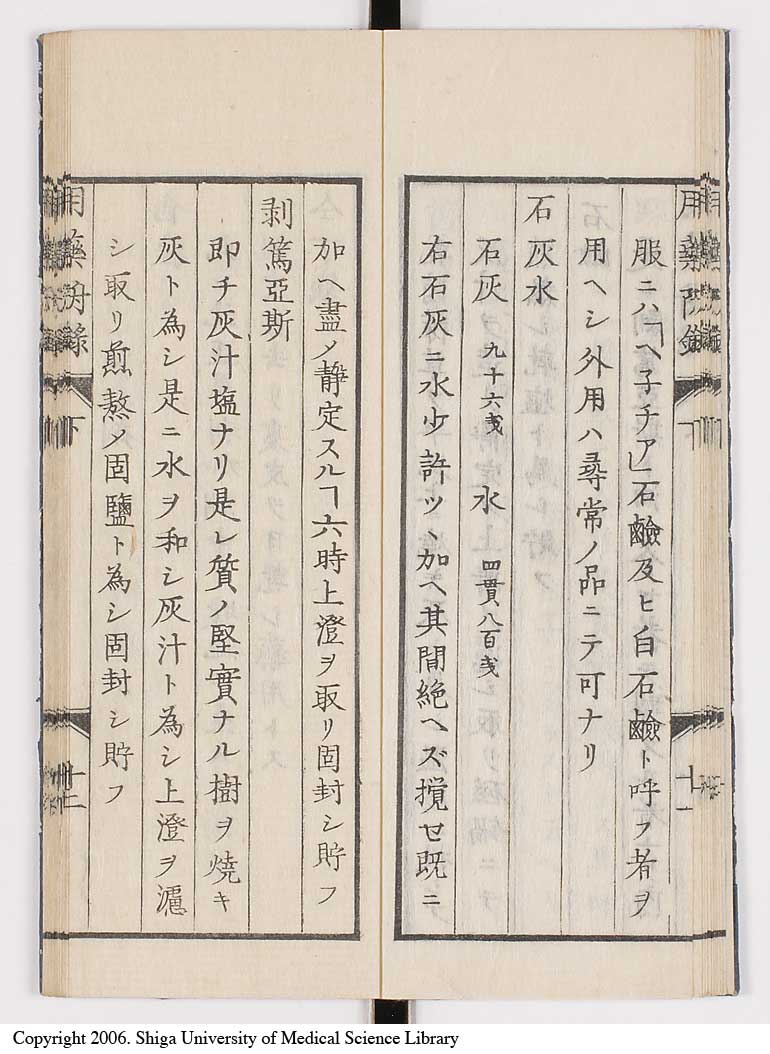 服ニハ「ヘ子チア」石鹼及ヒ白石鹼ト呼フ者ヲ
用ヘシ外用ハ尋常ノ品ニテ可ナリ
石灰水
石灰 九十六戔 水 四貫八百戔
右石灰ニ水少許ツヽ加ヘ其間絶ヘズ攪セ既ニ
加ヘ盡ノ靜定スルヿ六時上澄ヲ取リ固封シ貯フ
剥篤亞斯
即チ灰汁塩ナリ是レ質ノ堅實ナル樹ヲ燒キ
灰ト為シ是ニ水ヲ和シ灰汁ト為シ上澄ヲ漉
シ取リ煎熬ノ固鹽ト為シ固封シ貯フ
下
Copyright 2006. Shiga University of Medical Science Library